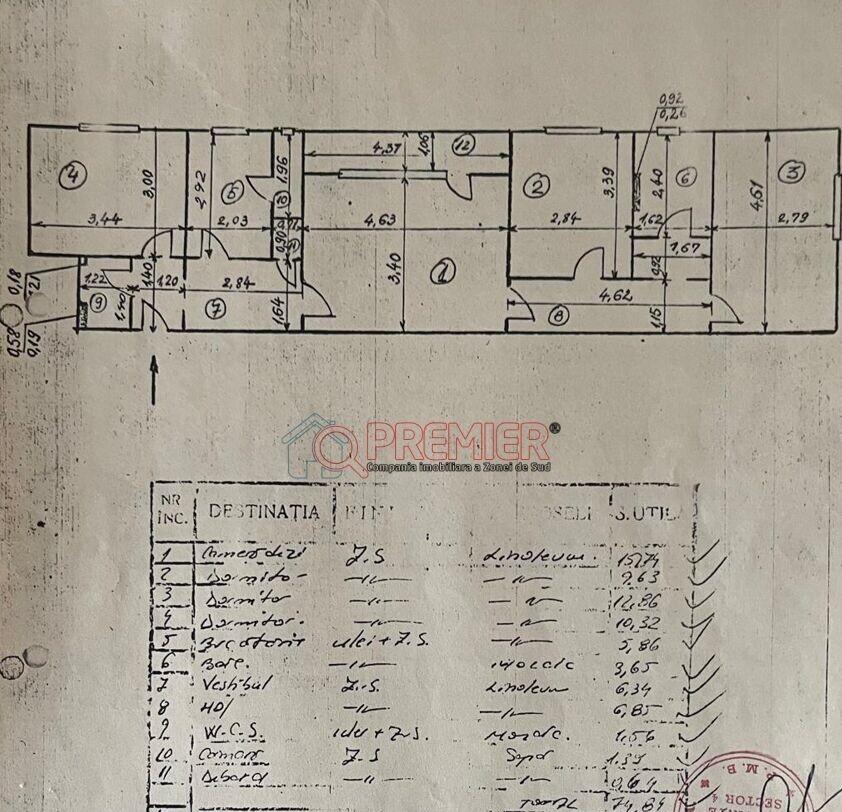 0,92
0,26
4
3,00
2,92
5
1,96
4,37
1,06
12
2
3,39
2,40
6
4,61
3
3,44
2,03
4,63
2,84
1,62
2,79
0,90
1,67
0,92
3,40
1
1,22
1,40
1,20
2,84
4,62
0,18
9
7
1,64
8
1,15
0,58
0,19
PREMIER®
Compania imobiliara a Zonei de Sud
NR
ÎNC. DESTINAȚIA S.UTIL
1 Z.S Linoleum. 15,74
2 Dormitor —〃— —〃— 9,63
3 Dormitor —〃— —〃— 12,86
4 Dormitor. —〃— —〃— 10,32
5 ulei + Z.S. —〃— 5,86
6 Baie. —〃— Mozaic 3,65
7 Vestibul Z.S. Linoleum 6,34
8 Hol —〃— —〃— 6,85
9 W.C.S. ulei + Z.S. Mozaic. 1,56
10 Camara Z.S 1.39
11 —〃— —〃— 0,64
TOTAL 74,84
P.M.B.
SECTOR 4